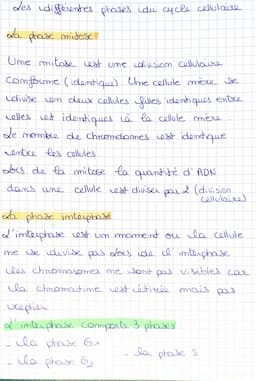 Les différentes phases du cycle cellulaire
La phase mitose
Une mitose est une division cellulaire
conforme (identique). Une cellule mère se
divise en deux cellules filles identiques entre
elles et identiques à la cellule mère
Le nombre de chromosomes est identique
entre les cellules.
Lors de la mitose la quantité d'ADN
dans une cellule est diviser par 2 (division
cellulaire)
La phase interphase
L'interphase est un moment ou la cellule
ne se divise pas lors de l'interphase
les chromosomes ne sont pas visibles car
la chromatine est étirée mais pas
L'interphase comporte 3 phases
- la phase G1
- la phase S
- la phase G2